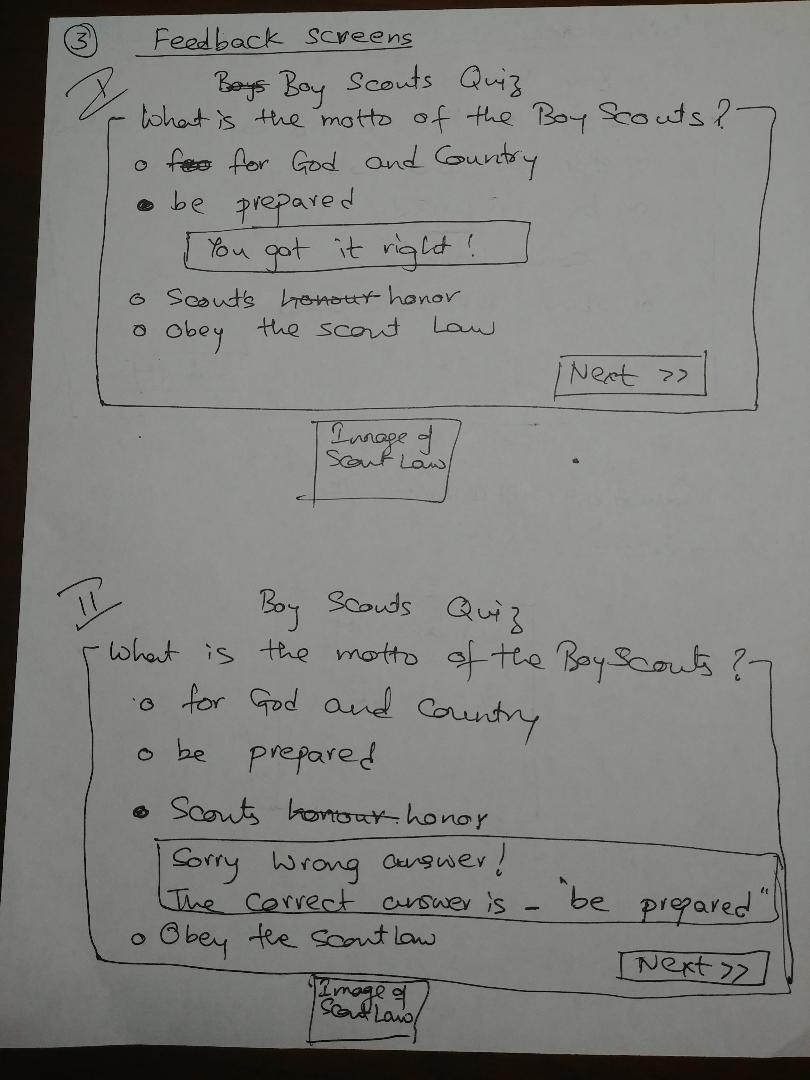 ③ Feedback screens
I
Boys Boy Scouts Quiz
What is the motto of the Boy Scouts?
foo for God and Country
be prepared
You got it right!
Scout's honour honor
Obey the scout Law
Next >>
Image of
Scout Law
II
Boy Scouts Quiz
What is the motto of the Boy Scouts?
for God and Country
be prepared
Scouts honour honor
Sorry Wrong answer!
The Correct answer is - "be prepared"
Obey the scout law
Next >>
Image of
Scout Law